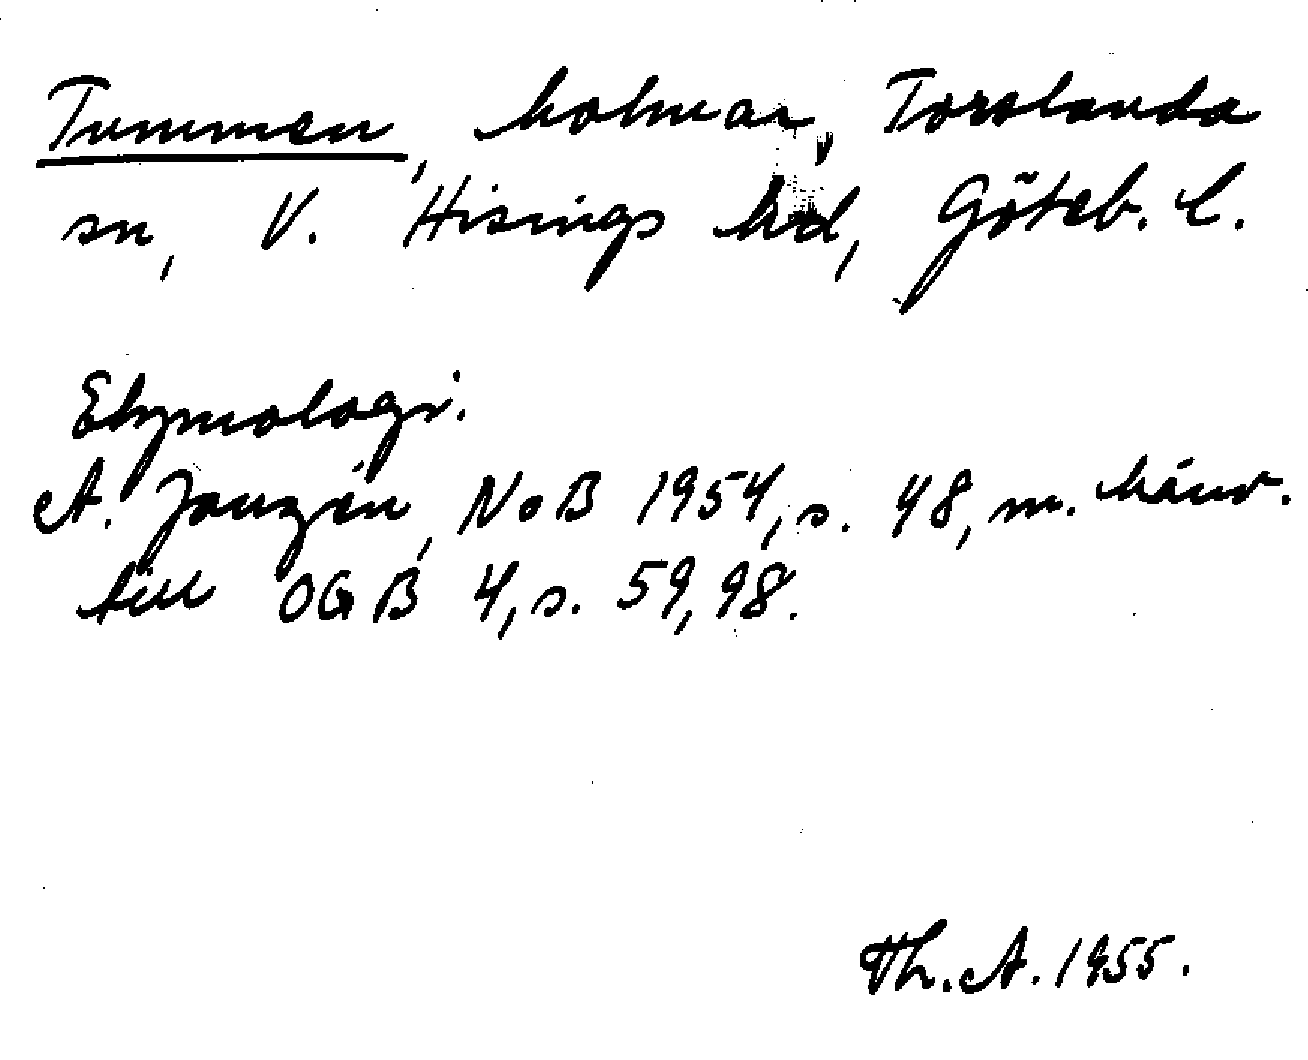 Tummen, holmar, Torslanda
sn, V. Hisings hd, Göteb. l.
Etymologi.
A. Janzén, NoB 1954, s. 48, m. hänv.
till OGB 4, s. 59, 98.
Th. A. 1955.